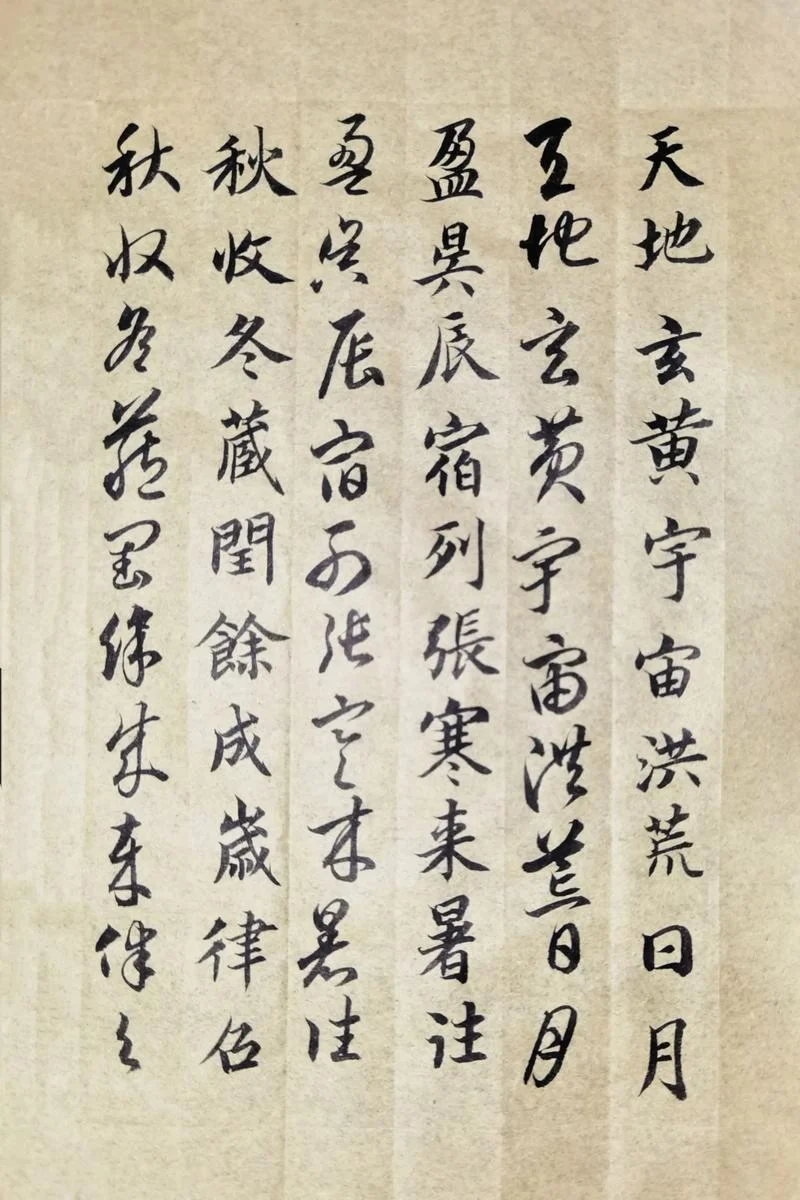 天地玄黄宇宙洪荒日月
天地玄黄宇宙洪荒日月
盈昃辰宿列張寒来暑往
盈昃辰宿列張寒来暑往
秋收冬蔵閏餘成歳律召
秋收冬蔵閏餘成歳律召